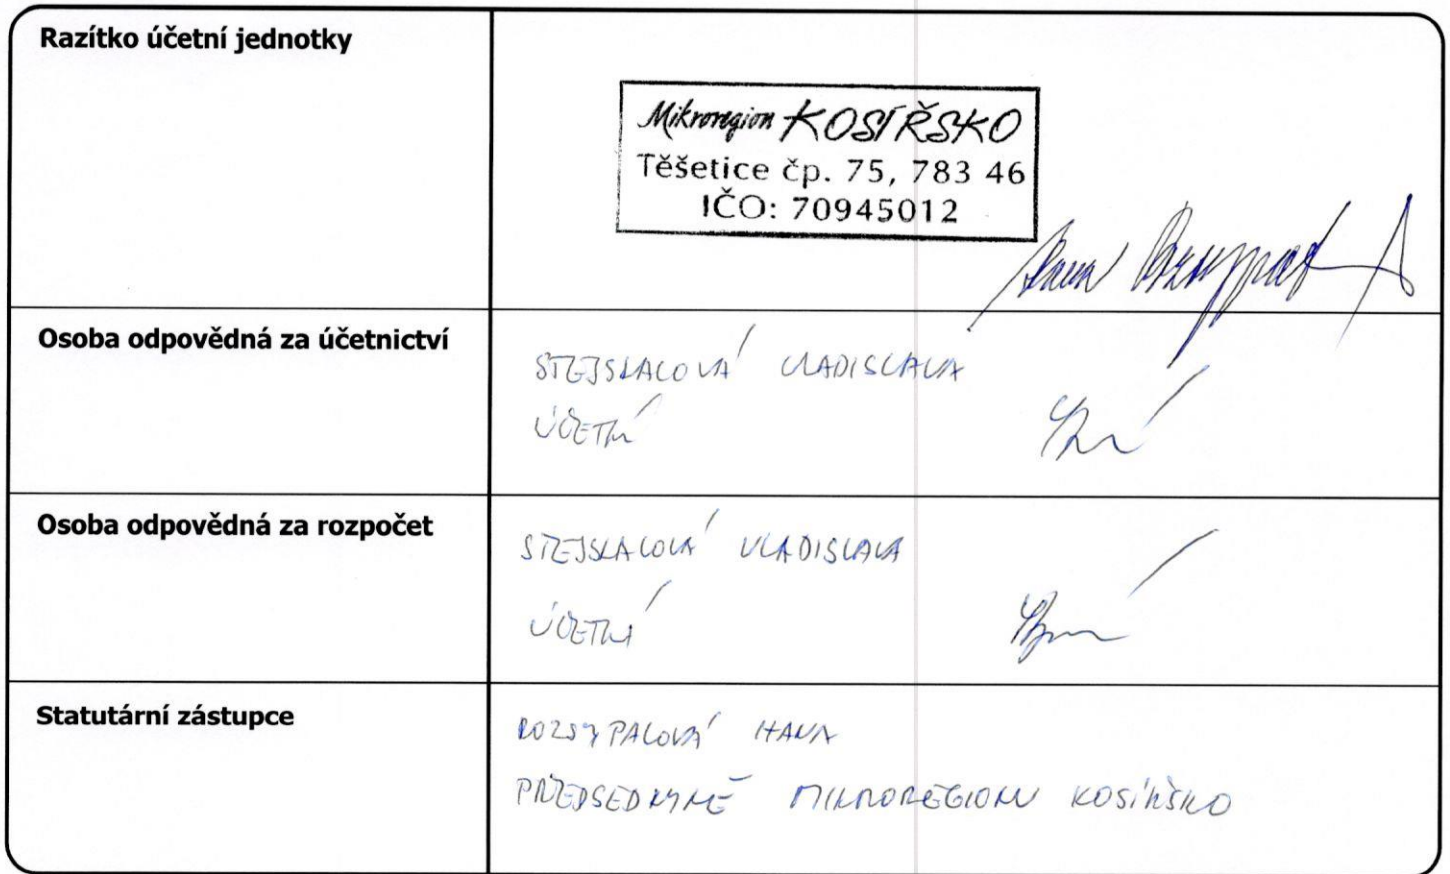 Razítko účetní jednotky
Mikroregion KOSÍŘSKO
Těšetice čp. 75, 783 46
IČO: 70945012
Osoba odpovědná za účetnictví
STEJSKALOVÁ VLADISLAVA
ÚČETNÍ
Osoba odpovědná za rozpočet
STEJSKALOVÁ VLADISLAVA
ÚČETNÍ
Statutární zástupce
ROZSYPALOVÁ HANA
PŘEDSEDKYNĚ MIKROREGIONU KOSÍŘSKO